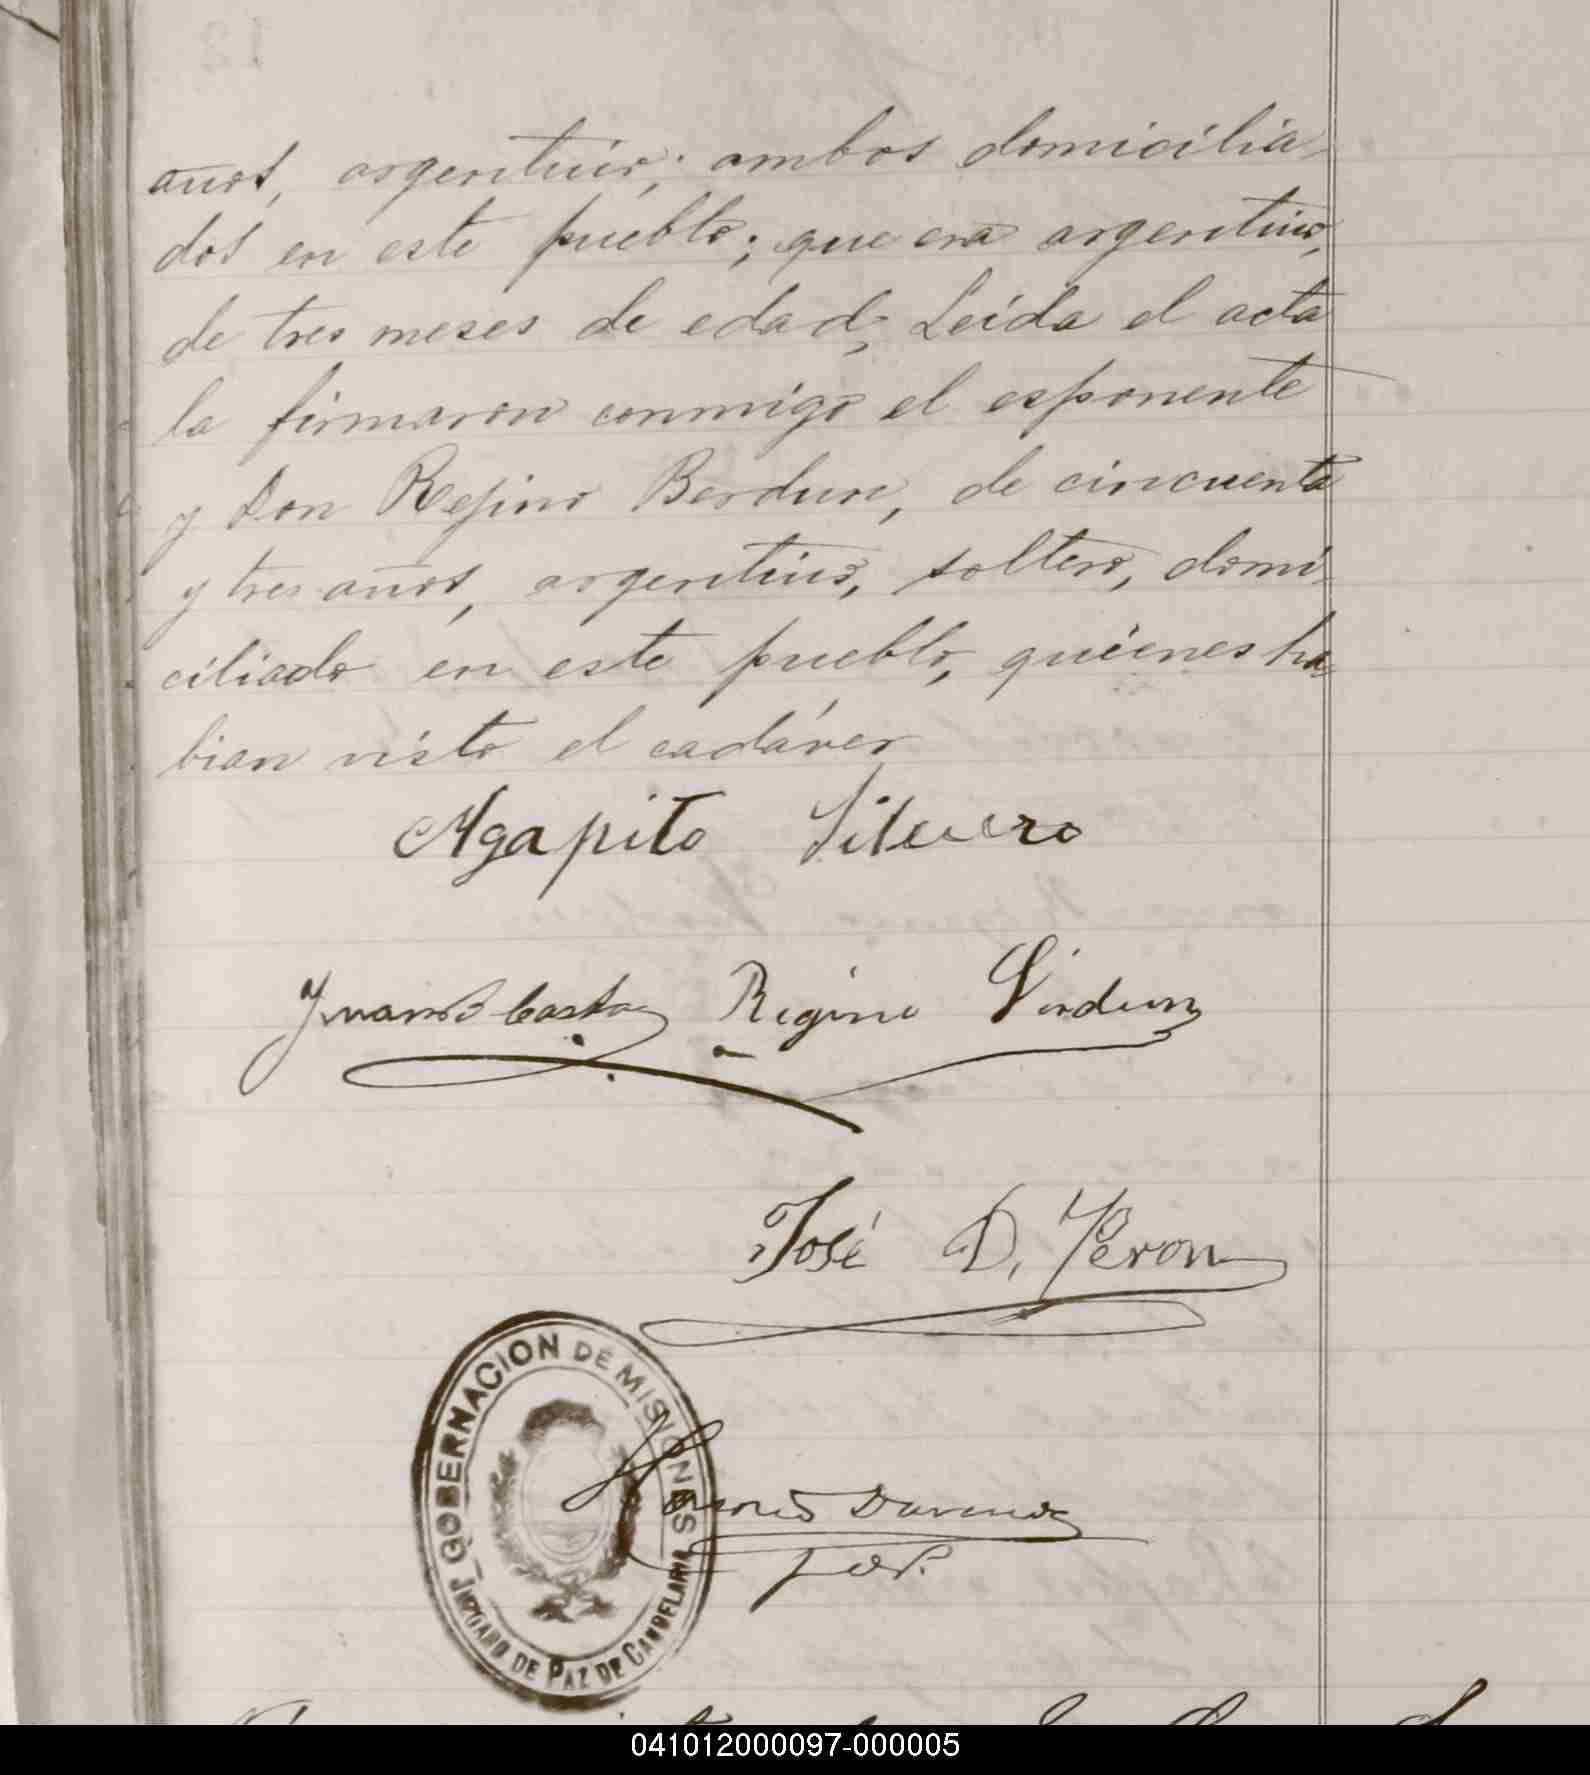 años, argentino; ambos domicilia-
dos en este pueblo; que era argentino,
de tres meses de edad, Leida el acta
la firmaron conmigo el esponente
y Don Rejino Berdun, de cincuenta
y tres años, argentino, soltero, domi-
ciliado en este pueblo, quienes ha-
bian visto el cadáver
Agapito
Juan B Castro Regino Virdun
José D. Peron
GOBERNACION DE MISIONES
JUZGADO DE PAZ DE CANDELARIA
041012000097-000005